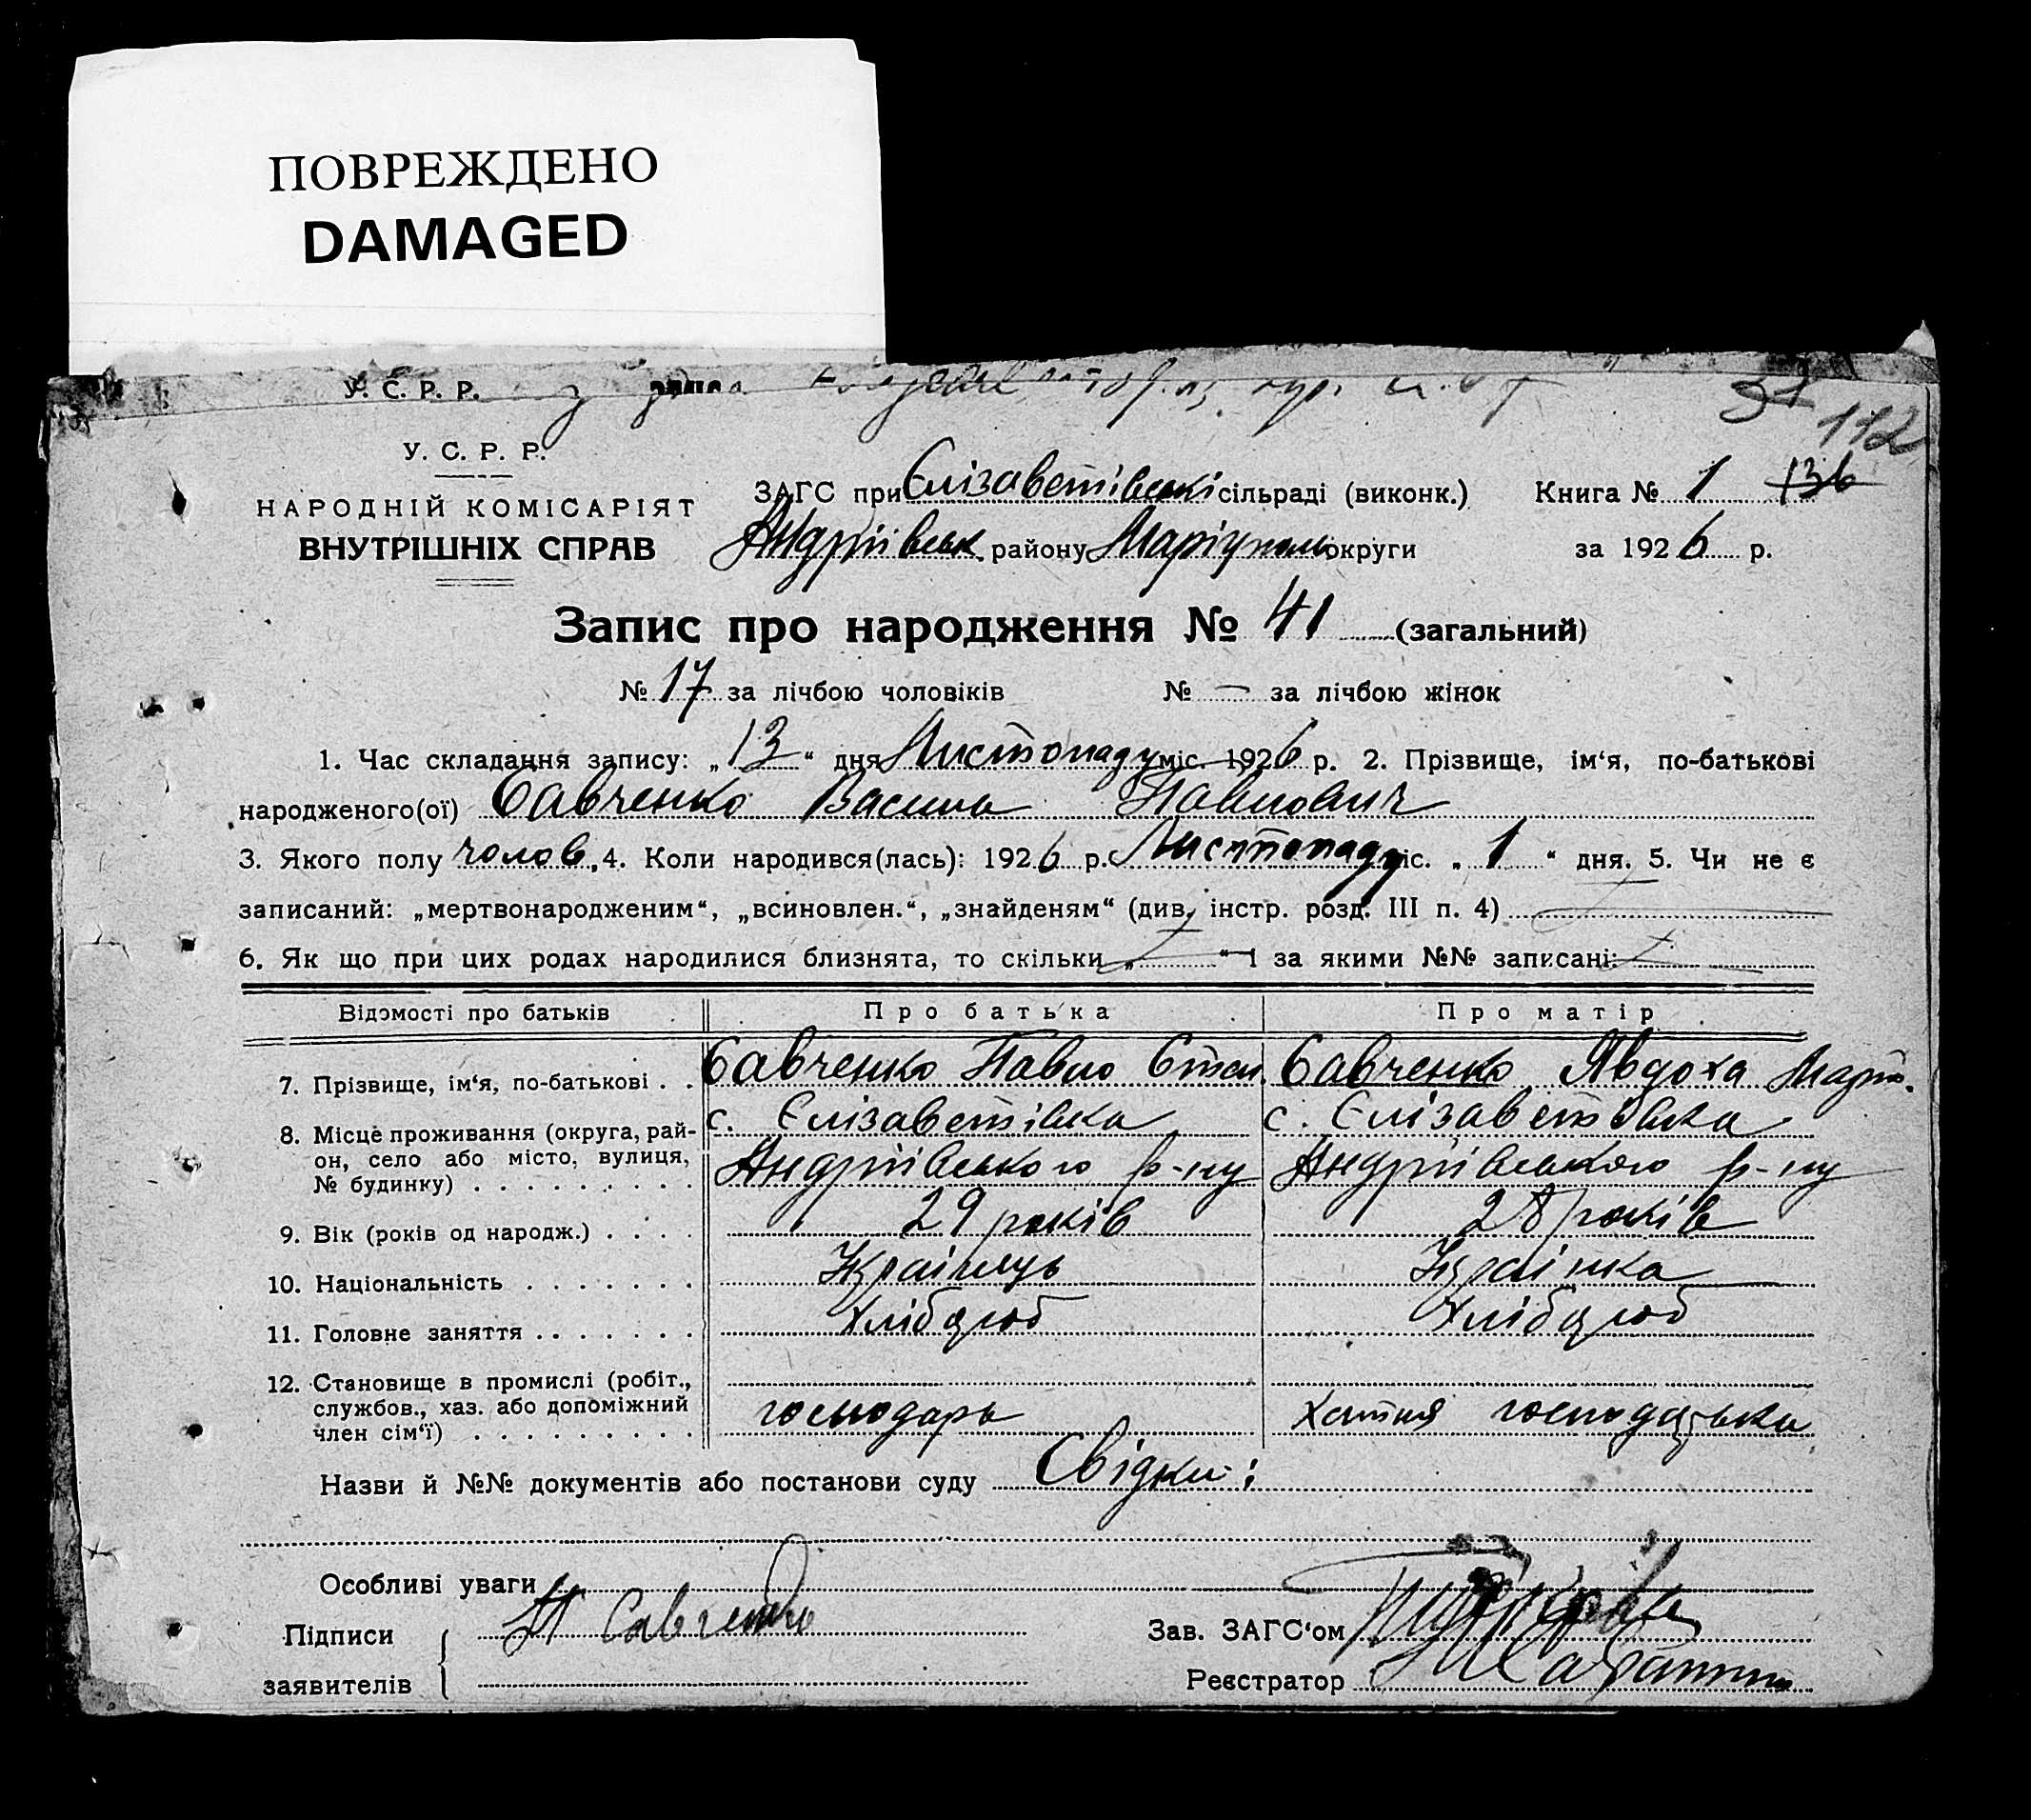 ПОВРЕЖДЕНО
DAMAGED
У. С. Р. Р.
31
112
У. С. Р. Р.
НАРОДНІЙ КОМІСАРІЯТ
ВНУТРІШНІХ СПРАВ
ЗАГС при Єлізаветівській сільраді (виконк.) Книга № 1 136
Андріївськ району Маріуполь округи за 1926 р.
Запис про народження № 41 (загальний)
№ 17 за лічбою чоловіків № — за лічбою жінок
1. Час складання запису: „13“ дня Листопаду міс. 1926 р. 2. Прізвище, ім‘я, по-батькові
народженого(ої) Савченко Василь Павлович
3. Якого полу чолов. 4. Коли народився(лась): 1926 р. Листопаду міс. „1“ дня. 5. Чи не є
записаний: „мертвонародженим“, „всиновлен.“, „знайденям“ (див. інстр. розд. III п. 4)
6. Як що при цих родах народилися близнята, то скільки „ “ і за якими №№ записані:
Відомості про батьків Про батька Про матір
7. Прізвище, ім‘я, по-батькові . . Савченко Павло Степ. Савченко Явдоха Март.
8. Місце проживання (округа, рай-
он, село або місто, вулиця,
№ будинку) . . . . . . . . .
с. Єлізаветівка с. Єлізаветівка
Андріївського р-ну Андріївського р-ну
9. Вік (років од народж.) . . . . 29 років 28 років
10. Національність . . . . . . . Українець Українка
11. Головне заняття . . . . . . . Хлібороб Хлібороб
12. Становище в промислі (робіт.,
службов., хаз. або допоміжний
член сім‘ї) . . . . . . . . .
господарь хатня господарька
Назви й №№ документів або постанови суду Свідки:
Особливі уваги
Підписи П Савченко Зав. ЗАГС‘ом
заявителів Реєстратор